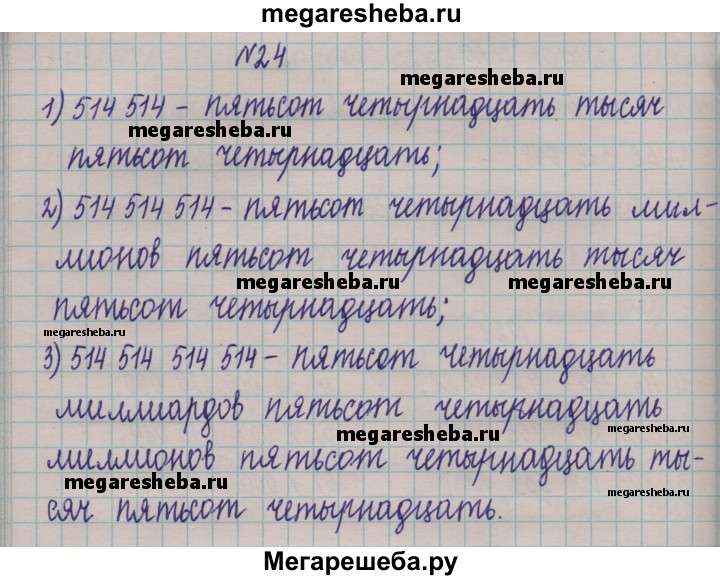 megaresheba.ru
№24
megaresheba.ru
1) 514 514 - пятьсот четырнадцать тысяч
megaresheba.ru
пятьсот четырнадцать;
2) 514 514 514 - пятьсот четырнадцать мил-
лионов пятьсот четырнадцать тысяч
megaresheba.ru megaresheba.ru
пятьсот четырнадцать;
megaresheba.ru
3) 514 514 514 514 - пятьсот четырнадцать
миллиардов пятьсот четырнадцать
megaresheba.ru megaresheba.ru
миллионов пятьсот четырнадцать ты-
megaresheba.ru megaresheba.ru
сяч пятьсот четырнадцать.
Мегарешеба.ру